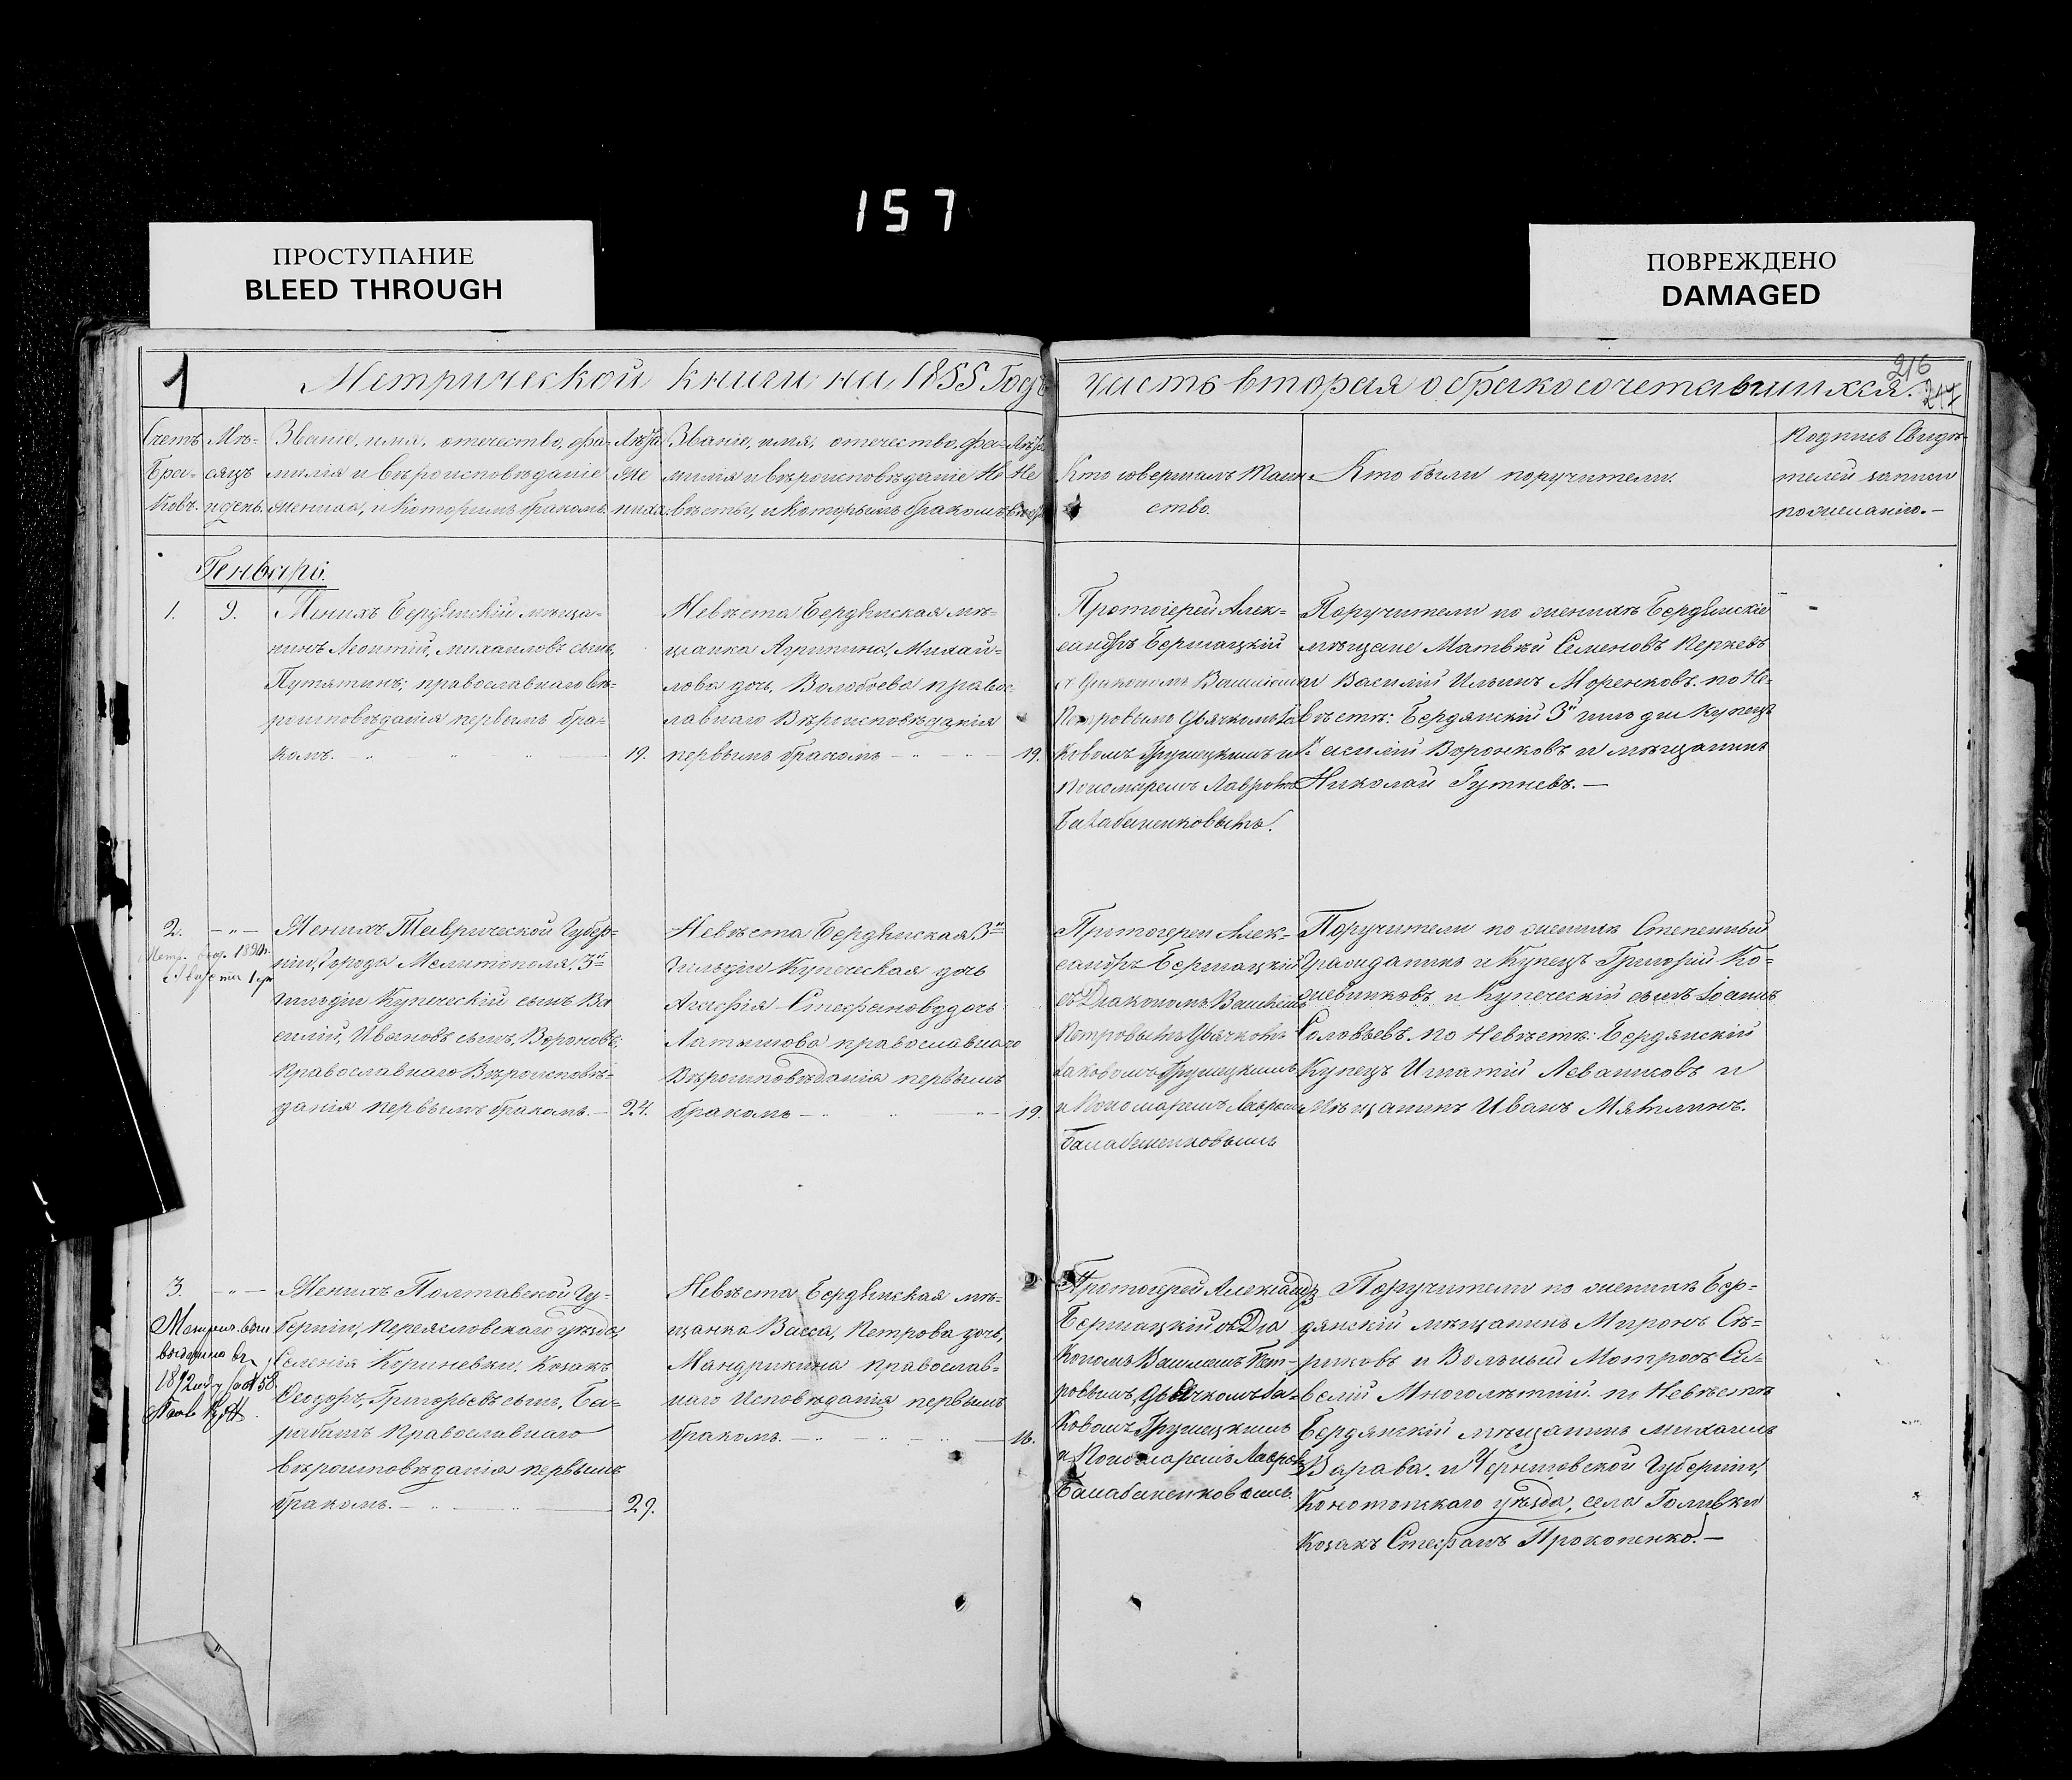 157
ПРОСТУПАНИЕ
BLEED THROUGH
ПОВРЕЖДЕНО
DAMAGED
216
217
1
Метрической книги на 1855 Годъ
часть вторая о бракосочетавшихся.
Счетъ
Бра-
ковъ.
Мѣ-
сяцъ
и день.
Званіе, имя, отечество, фа-
милія и вѣроисповѣданіе
жениха, и которымъ бракомъ.
Лѣта
Же
ниха.
Званіе, имя, отечество, фа-
милія и вѣроисповѣданіе Не
вѣсты, и которымъ бракомъ
Лѣта
Не
вѣсты
Кто совершалъ Таин-
ство.
Кто были поручители.
Подпись Свидѣ-
телей записи
по желанію.—
Генваря.
1.
9.
Женихъ Бердянскій мѣща-
нинъ Леонтій, Михаиловъ сынъ,
Путятинъ; православнаго вѣ-
роисповѣданія первымъ бра-
комъ.
19.
Невѣста Бердянская мѣ-
щанка Агрипина, Михай-
лова дочь, православ-
лавнаго Вѣроисповѣданія
первымъ бракомъ
19.
Протоіерей Алек-
сандръ
Петровымъ Дьячкомъ Іа-
ковомъ и
Пономаремъ
Поручители по женихѣ Бердянскіе
мѣщане Матвѣй Семеновъ
и Василій Ильинъ Моренковъ. по Не-
вѣстѣ: Бердянскій 3й гильдіи Купецъ
Василій Воронковъ и мѣщанинъ
Николай Гутневъ.—
2.
— „ —
Женихъ Таврической Губер-
ніи, Города Мелитополя, 3й
гильдіи Купеческій сынъ Ва
силій, Ивановъ сынъ, Вороновъ;
Православнаго Вѣроисповѣ-
данія первымъ бракомъ.—
24.
Невѣста Бердянская 3й
Гильдіи Купеческая дочь
Стефанова дочь
Латышова православнаго
Вѣроисповѣданія первымъ
бракомъ
19.
Протоіерей Алек-
сандръ
съ Діакономъ
Петровымъ Дьячкомъ
Іаковомъ
и Пономаремъ
Поручители по женихѣ Степенный
Гражданинъ и Купецъ Григорій Ко-
жевниковъ и Купеческій сынъ Іоаннъ
Соловьевъ. по Невѣстѣ: Бердянскій
Купецъ Игнатій Левашковъ и
Мѣщанинъ Иванъ
3.
— „ —
Женихъ Полтавской Гу-
берніи, Переясловскаго уѣзда,
Селенія Козакъ
Феодоръ, Григорьевъ сынъ, Ба-
рабашъ Православнаго
вѣроисповѣданія первымъ
бракомъ.
29.
Невѣста Бердянская мѣ-
щанка Васса, Петрова дочь,
Мандрикина Православ-
наго Исповѣданія первымъ
бракомъ.
16.
Протоіерей Александръ
съ Діа
кономъ Пет-
ровымъ, Дьячкомъ Іа-
ковомъ
и Пономаремъ
Поручители по женихѣ Бер-
дянскій мѣщанинъ Миронъ Сѣ-
риковъ и Вольный Матросъ Са-
велій Многолѣтній. по Невѣстѣ
Бердянскій мѣщанинъ Михаилъ
Варава. и Черниговской Губерніи,
Конотопскаго уѣзда, села Голивки
Козакъ Стефанъ Прокопенко.—